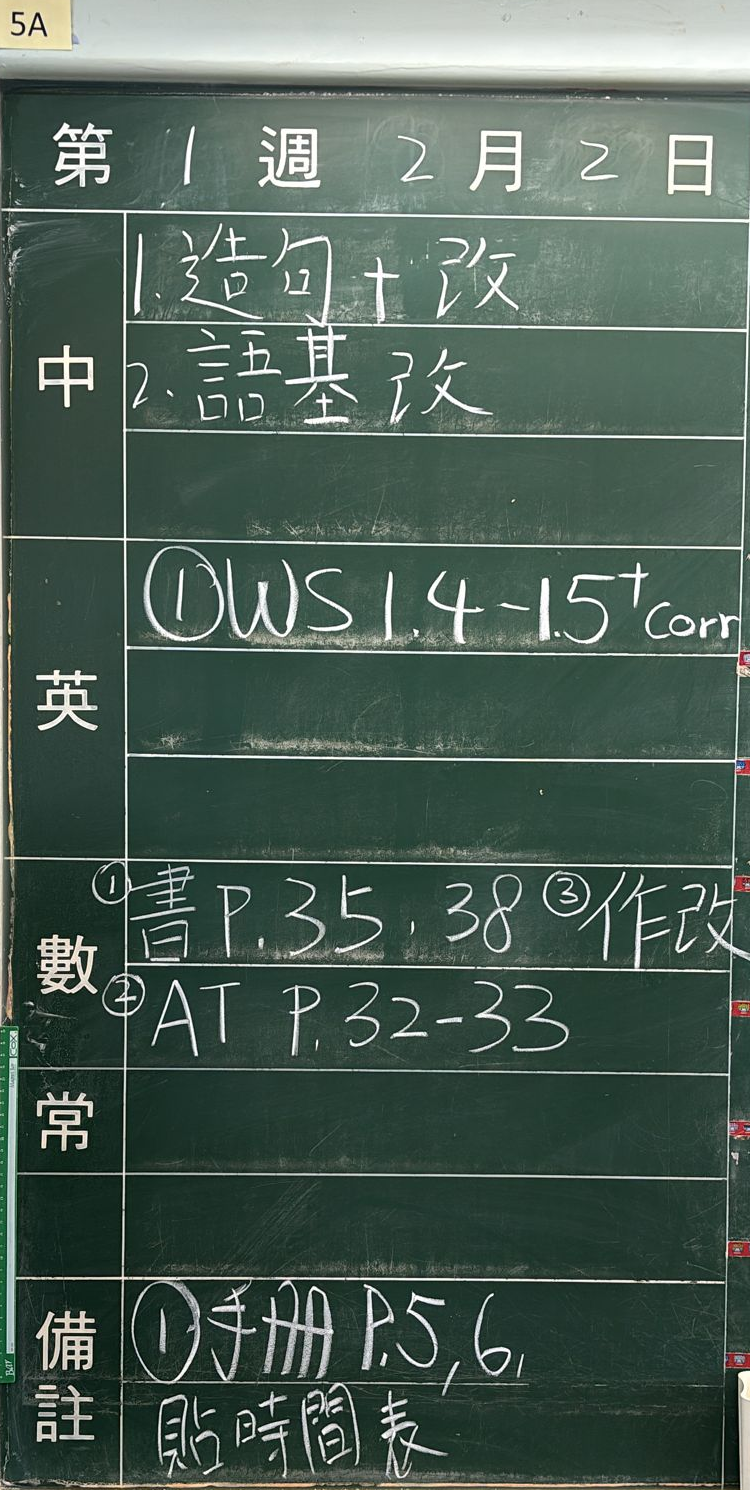 5A
第 1 週 2 月 2 日
中
1.造句+改
2.語基改
英
①WS 1.4-1.5+corr
數
①書P.35,38 ③作改
②AT P.32-33
常
備註
①手冊P.5,6,
貼時間表